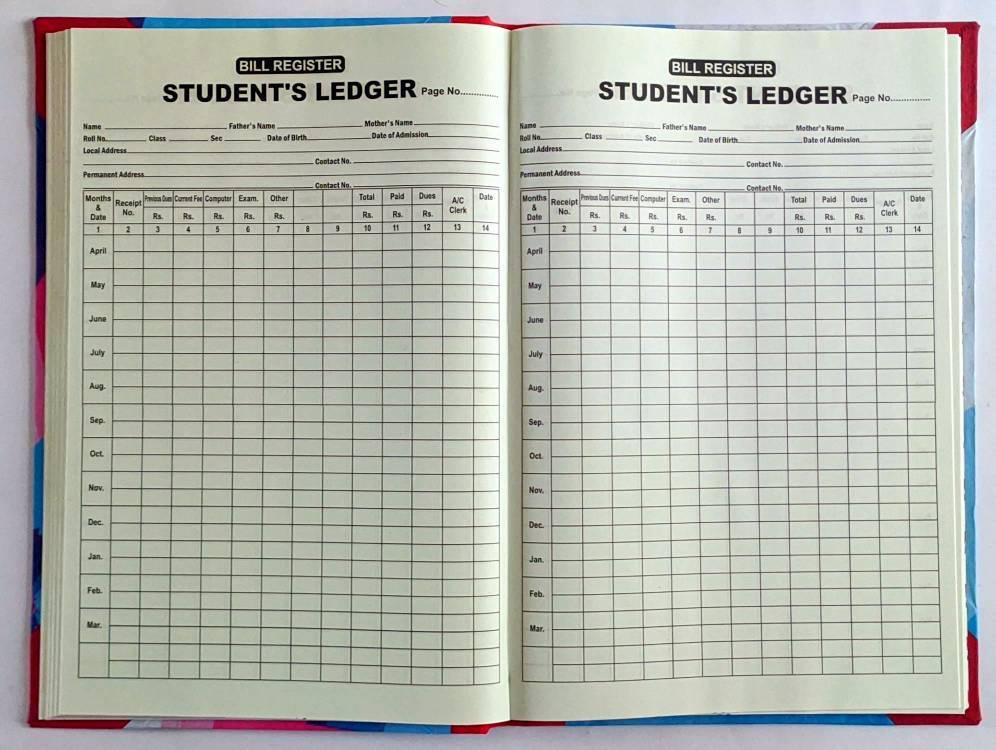 BILL REGISTER
STUDENT'S LEDGER Page No..............
Name Father's Name Mother's Name
Roll No. Class Sec Date of Birth Date of Admission
Local Address
Contact No.
Permanent Address
Contact No.
Months & Date Receipt No. Previous Dues Rs. Current Fee Rs. Computer Rs. Exam. Rs. Other Rs. Total Rs. Paid Rs. Dues Rs. A/C Clerk Date
1 2 3 4 5 6 7 8 9 10 11 12 13 14
April
May
June
July
Aug.
Sep.
Oct.
Nov.
Dec.
Jan.
Feb.
Mar.
BILL REGISTER
STUDENT'S LEDGER Page No..............
Name Father's Name Mother's Name
Roll No. Class Sec Date of Birth Date of Admission
Local Address
Contact No.
Permanent Address
Contact No.
Months & Date Receipt No. Previous Dues Rs. Current Fee Rs. Computer Rs. Exam. Rs. Other Rs. Total Rs. Paid Rs. Dues Rs. A/C Clerk Date
1 2 3 4 5 6 7 8 9 10 11 12 13 14
April
May
June
July
Aug.
Sep.
Oct.
Nov.
Dec.
Jan.
Feb.
Mar.